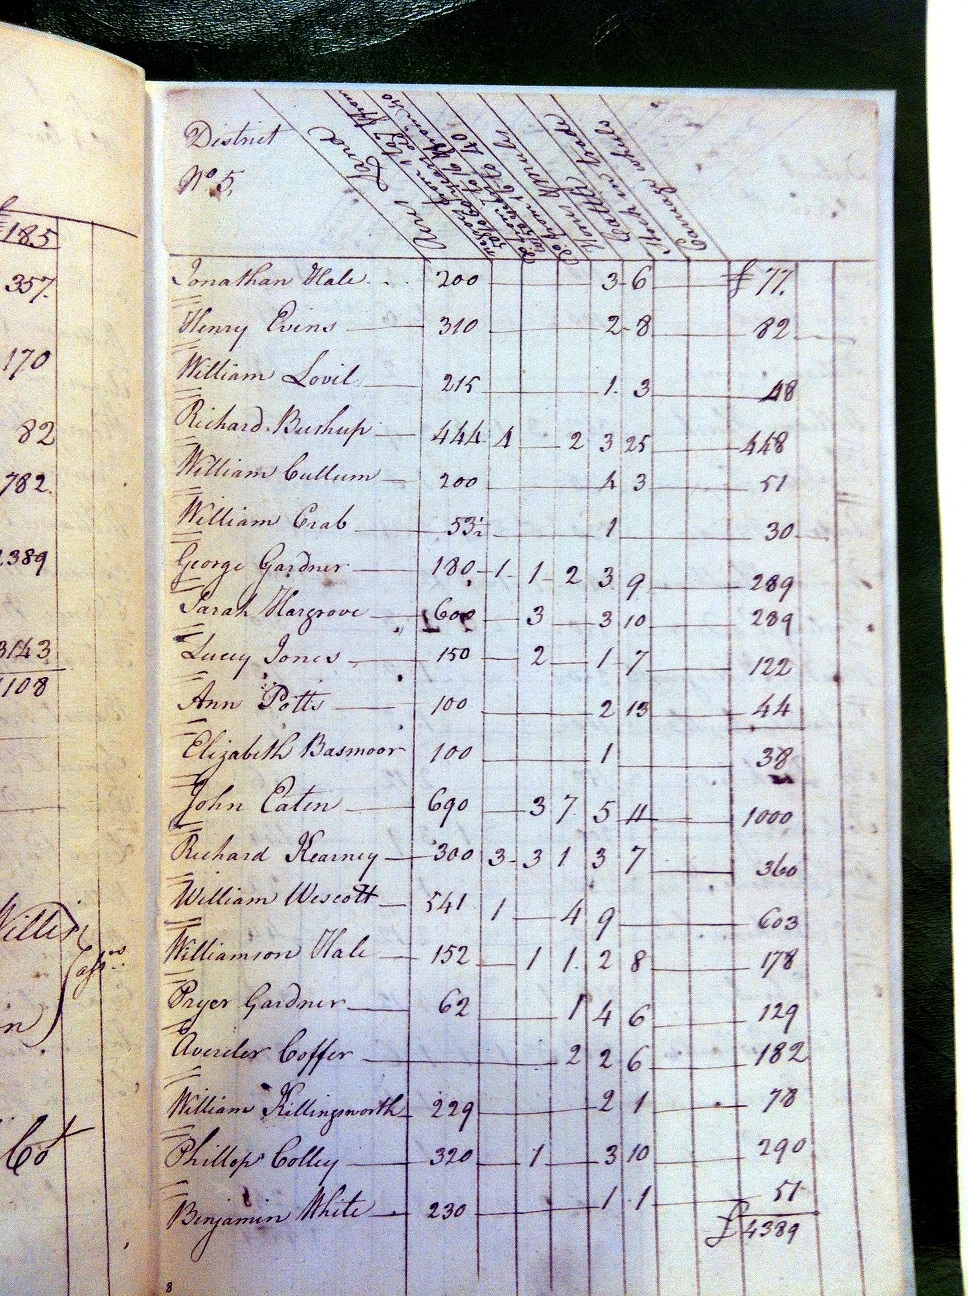 185
357.
170
82
782.
2389
3143
1108
District
No. 5.
Acres Land
Cattle
Jonathan Hale 200 3 6 £ 77.
Henry Evins 310 2 8 82
William Lovil 215 1 3 48
Richard Bushup 444 1 2 3 25 448
William Cullum 200 1 3 51
William Crab 53½ 1 30
George Gardner 180 1 1 2 3 9 289
Sarah Hargrove 600 3 3 10 289
Lucey Jones 150 2 1 7 122
Ann Potts 100 2 13 44
Elizabeth Basmoor 100 1 38
John Eaten 690 3 7 5 11 1000
Richard Kearney 300 3 3 1 3 7 360
William Wescott 541 1 4 9 603
Williamson Hale 152 1 1 2 8 178
Pryer Gardner 62 1 4 6 129
Coffer 2 2 6 182
William Killingsworth 229 2 1 78
Phillop Colley 320 1 3 10 290
Benjamin White 230 1 1 51
£ 4389
8